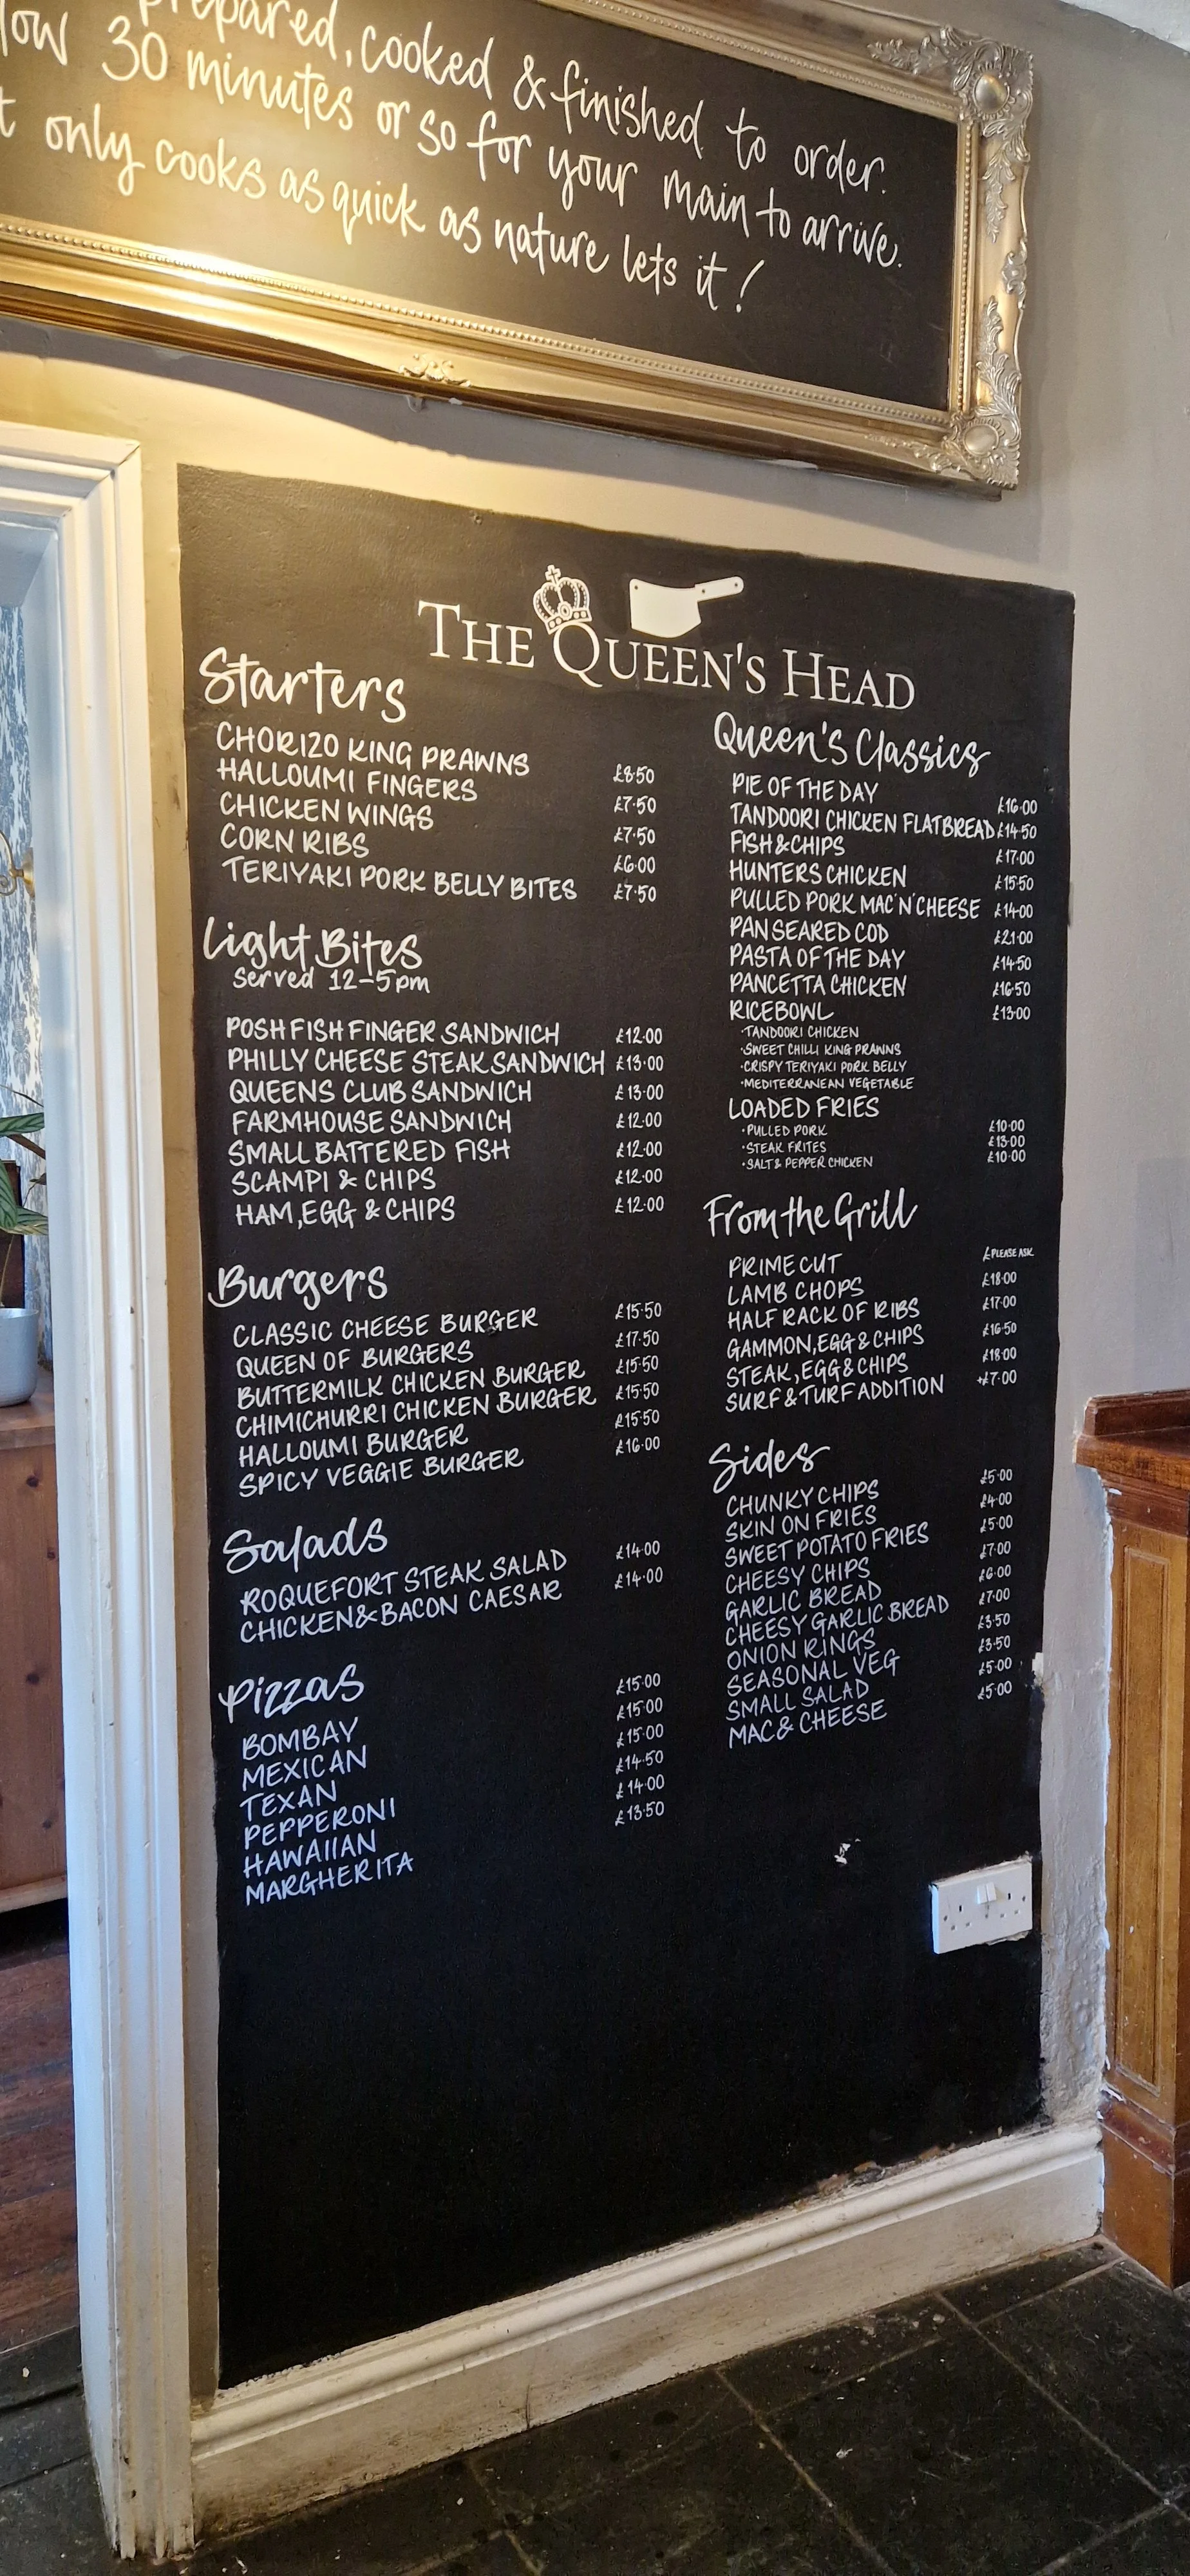 prepared, cooked & finished to order.
low 30 minutes or so for your main to arrive.
only cooks as quick as nature lets it!
THE QUEEN'S HEAD
Starters
CHORIZO KING PRAWNS £8.50
HALLOUMI FINGERS £7.50
CHICKEN WINGS £7.50
CORN RIBS £6.00
TERIYAKI PORK BELLY BITES £7.50
Light Bites
Served 12-5pm
POSH FISH FINGER SANDWICH £12.00
PHILLY CHEESE STEAK SANDWICH £13.00
QUEENS CLUB SANDWICH £13.00
FARMHOUSE SANDWICH £12.00
SMALL BATTERED FISH £12.00
SCAMPI & CHIPS £12.00
HAM, EGG & CHIPS £12.00
Burgers
CLASSIC CHEESE BURGER £15.50
QUEEN OF BURGERS £17.50
BUTTERMILK CHICKEN BURGER £15.50
CHIMICHURRI CHICKEN BURGER £15.50
HALLOUMI BURGER £15.50
SPICY VEGGIE BURGER £16.00
Salads
ROQUEFORT STEAK SALAD £14.00
CHICKEN & BACON CAESAR £14.00
Pizzas
BOMBAY £15.00
MEXICAN £15.00
TEXAN £15.00
PEPPERONI £14.50
HAWAIIAN £14.00
MARGHERITA £13.50
Queen's Classics
PIE OF THE DAY £16.00
TANDOORI CHICKEN FLATBREAD £14.50
FISH & CHIPS £17.00
HUNTERS CHICKEN £15.50
PULLED PORK MAC 'N' CHEESE £14.00
PAN SEARED COD £21.00
PASTA OF THE DAY £14.50
PANCETTA CHICKEN £16.50
RICEBOWL £13.00
·TANDOORI CHICKEN
·SWEET CHILLI KING PRAWNS
·CRISPY TERIYAKI PORK BELLY
·MEDITERRANEAN VEGETABLE
LOADED FRIES
·PULLED PORK £10.00
·STEAK FRITES £13.00
·SALT & PEPPER CHICKEN £10.00
From the Grill
PRIME CUT £PLEASE ASK
LAMB CHOPS £18.00
HALF RACK OF RIBS £17.00
GAMMON, EGG & CHIPS £16.50
STEAK, EGG & CHIPS £18.00
SURF & TURF ADDITION +£7.00
Sides
CHUNKY CHIPS £5.00
SKIN ON FRIES £4.00
SWEET POTATO FRIES £5.00
CHEESY CHIPS £7.00
GARLIC BREAD £6.00
CHEESY GARLIC BREAD £7.00
ONION RINGS £3.50
SEASONAL VEG £3.50
SMALL SALAD £5.00
MAC & CHEESE £5.00